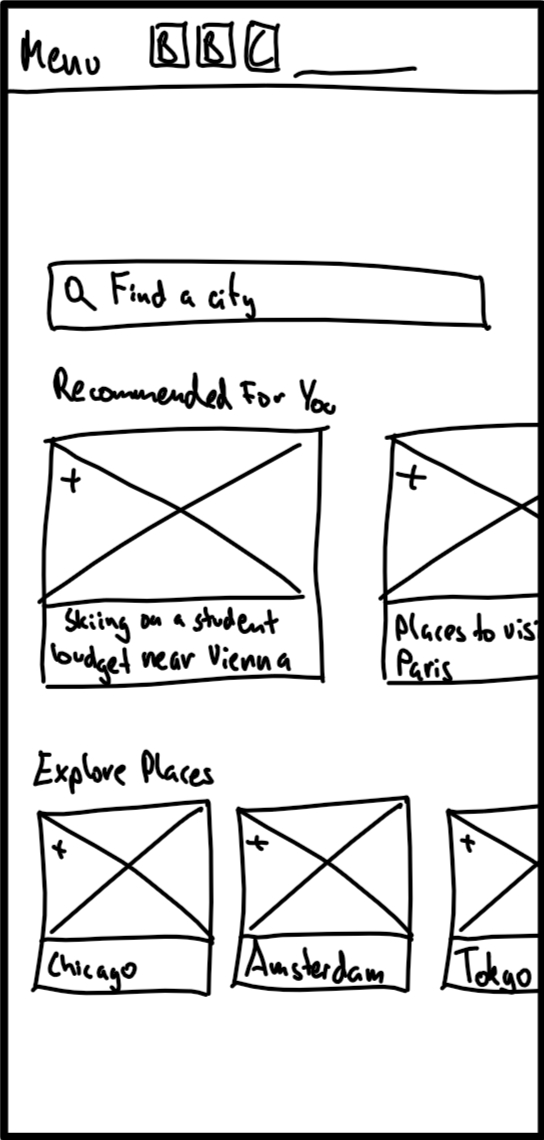 Menu B B C
Find a city
Recommended For You
+ +
Skiing on a student
budget near Vienna
Places to vis
Paris
Explore Places
+ + +
Chicago Amsterdam Tokyo